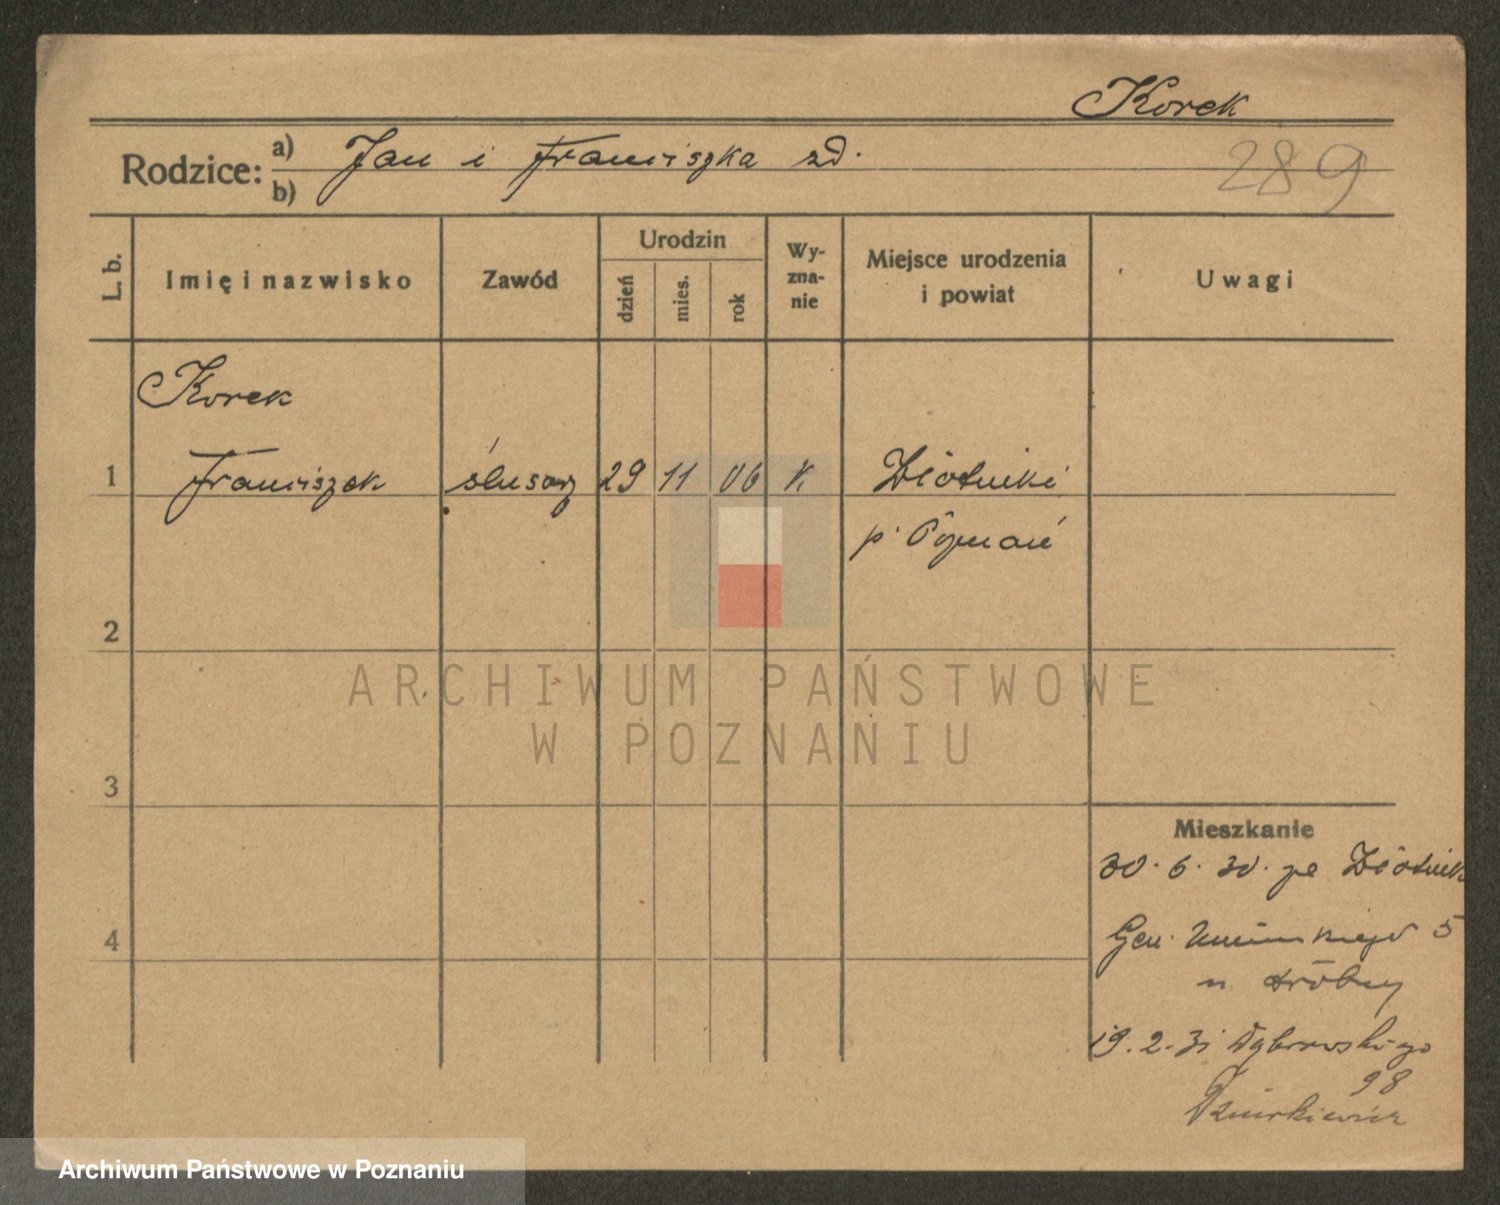 Korek
Rodzice: a) Jan i Franciszka zd.
b)
289
L. b.
Imię i nazwisko
Zawód
Urodzin
dzień
mies.
rok
Wy-
zna-
nie
Miejsce urodzenia
i powiat
Uwagi
Korek
1 Franciszek ślusarz 29 11 06 k Złotniki
p. Poznań
2
ARCHIWUM PAŃSTWOWE
W POZNANIU
3
Mieszkanie
30. 6. 30. ze Złotnik
4
Gen. Umińskiego 5
u
19. 2. 31 Dąbrowskiego
98
Archiwum Państwowe w Poznaniu